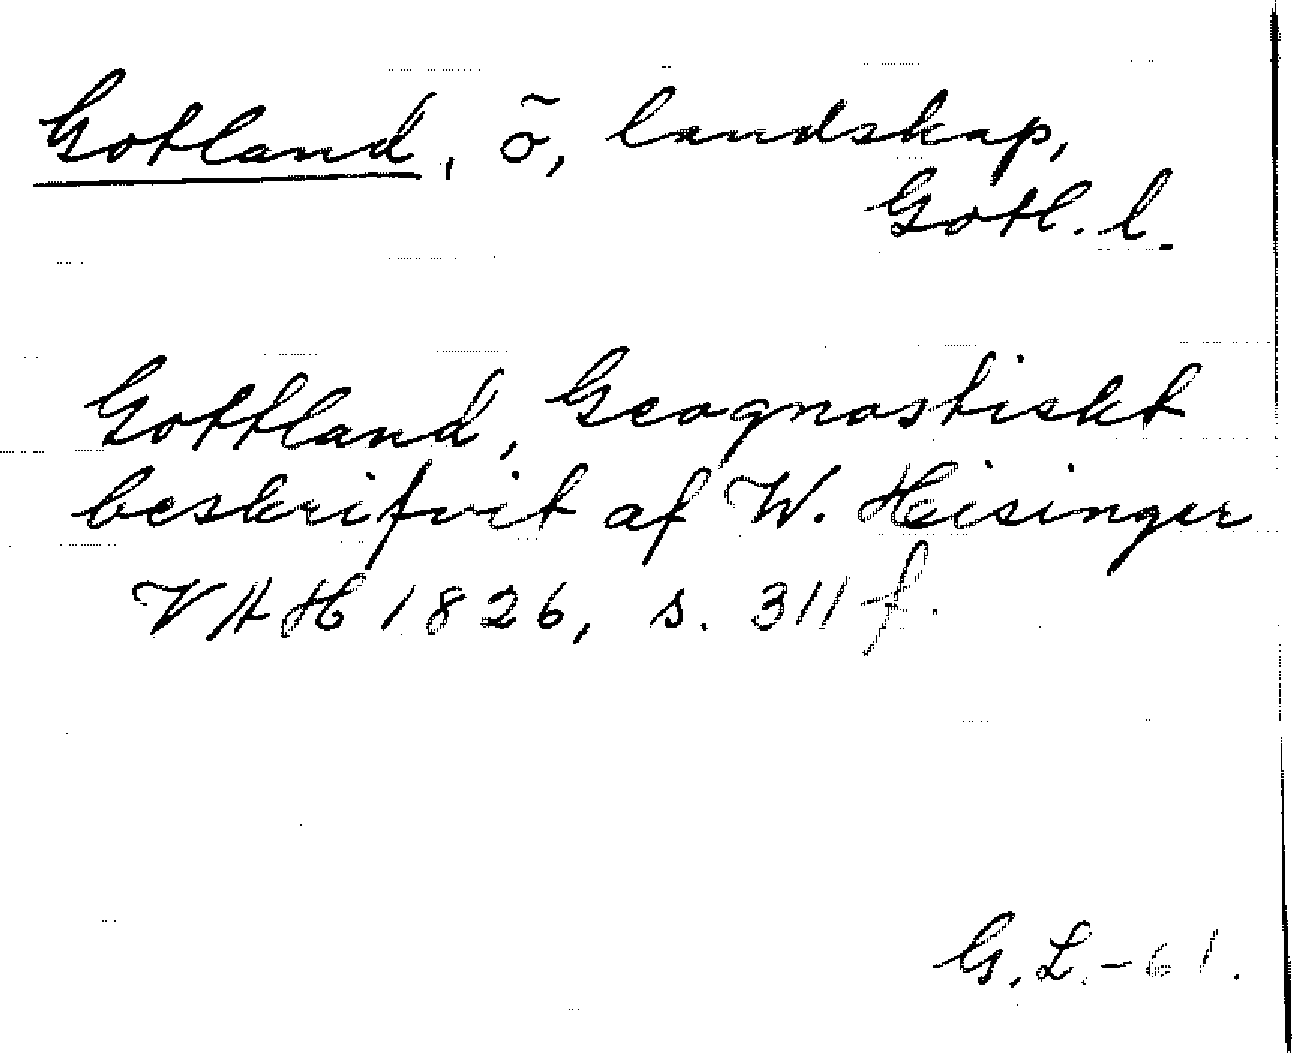 Gotland, ö, landskap,
Gotl. l.
Gottland, Geognostiskt
beskrifvit af W. Heisinger
VAH 1826, s. 311 f.
G. L. - 61.